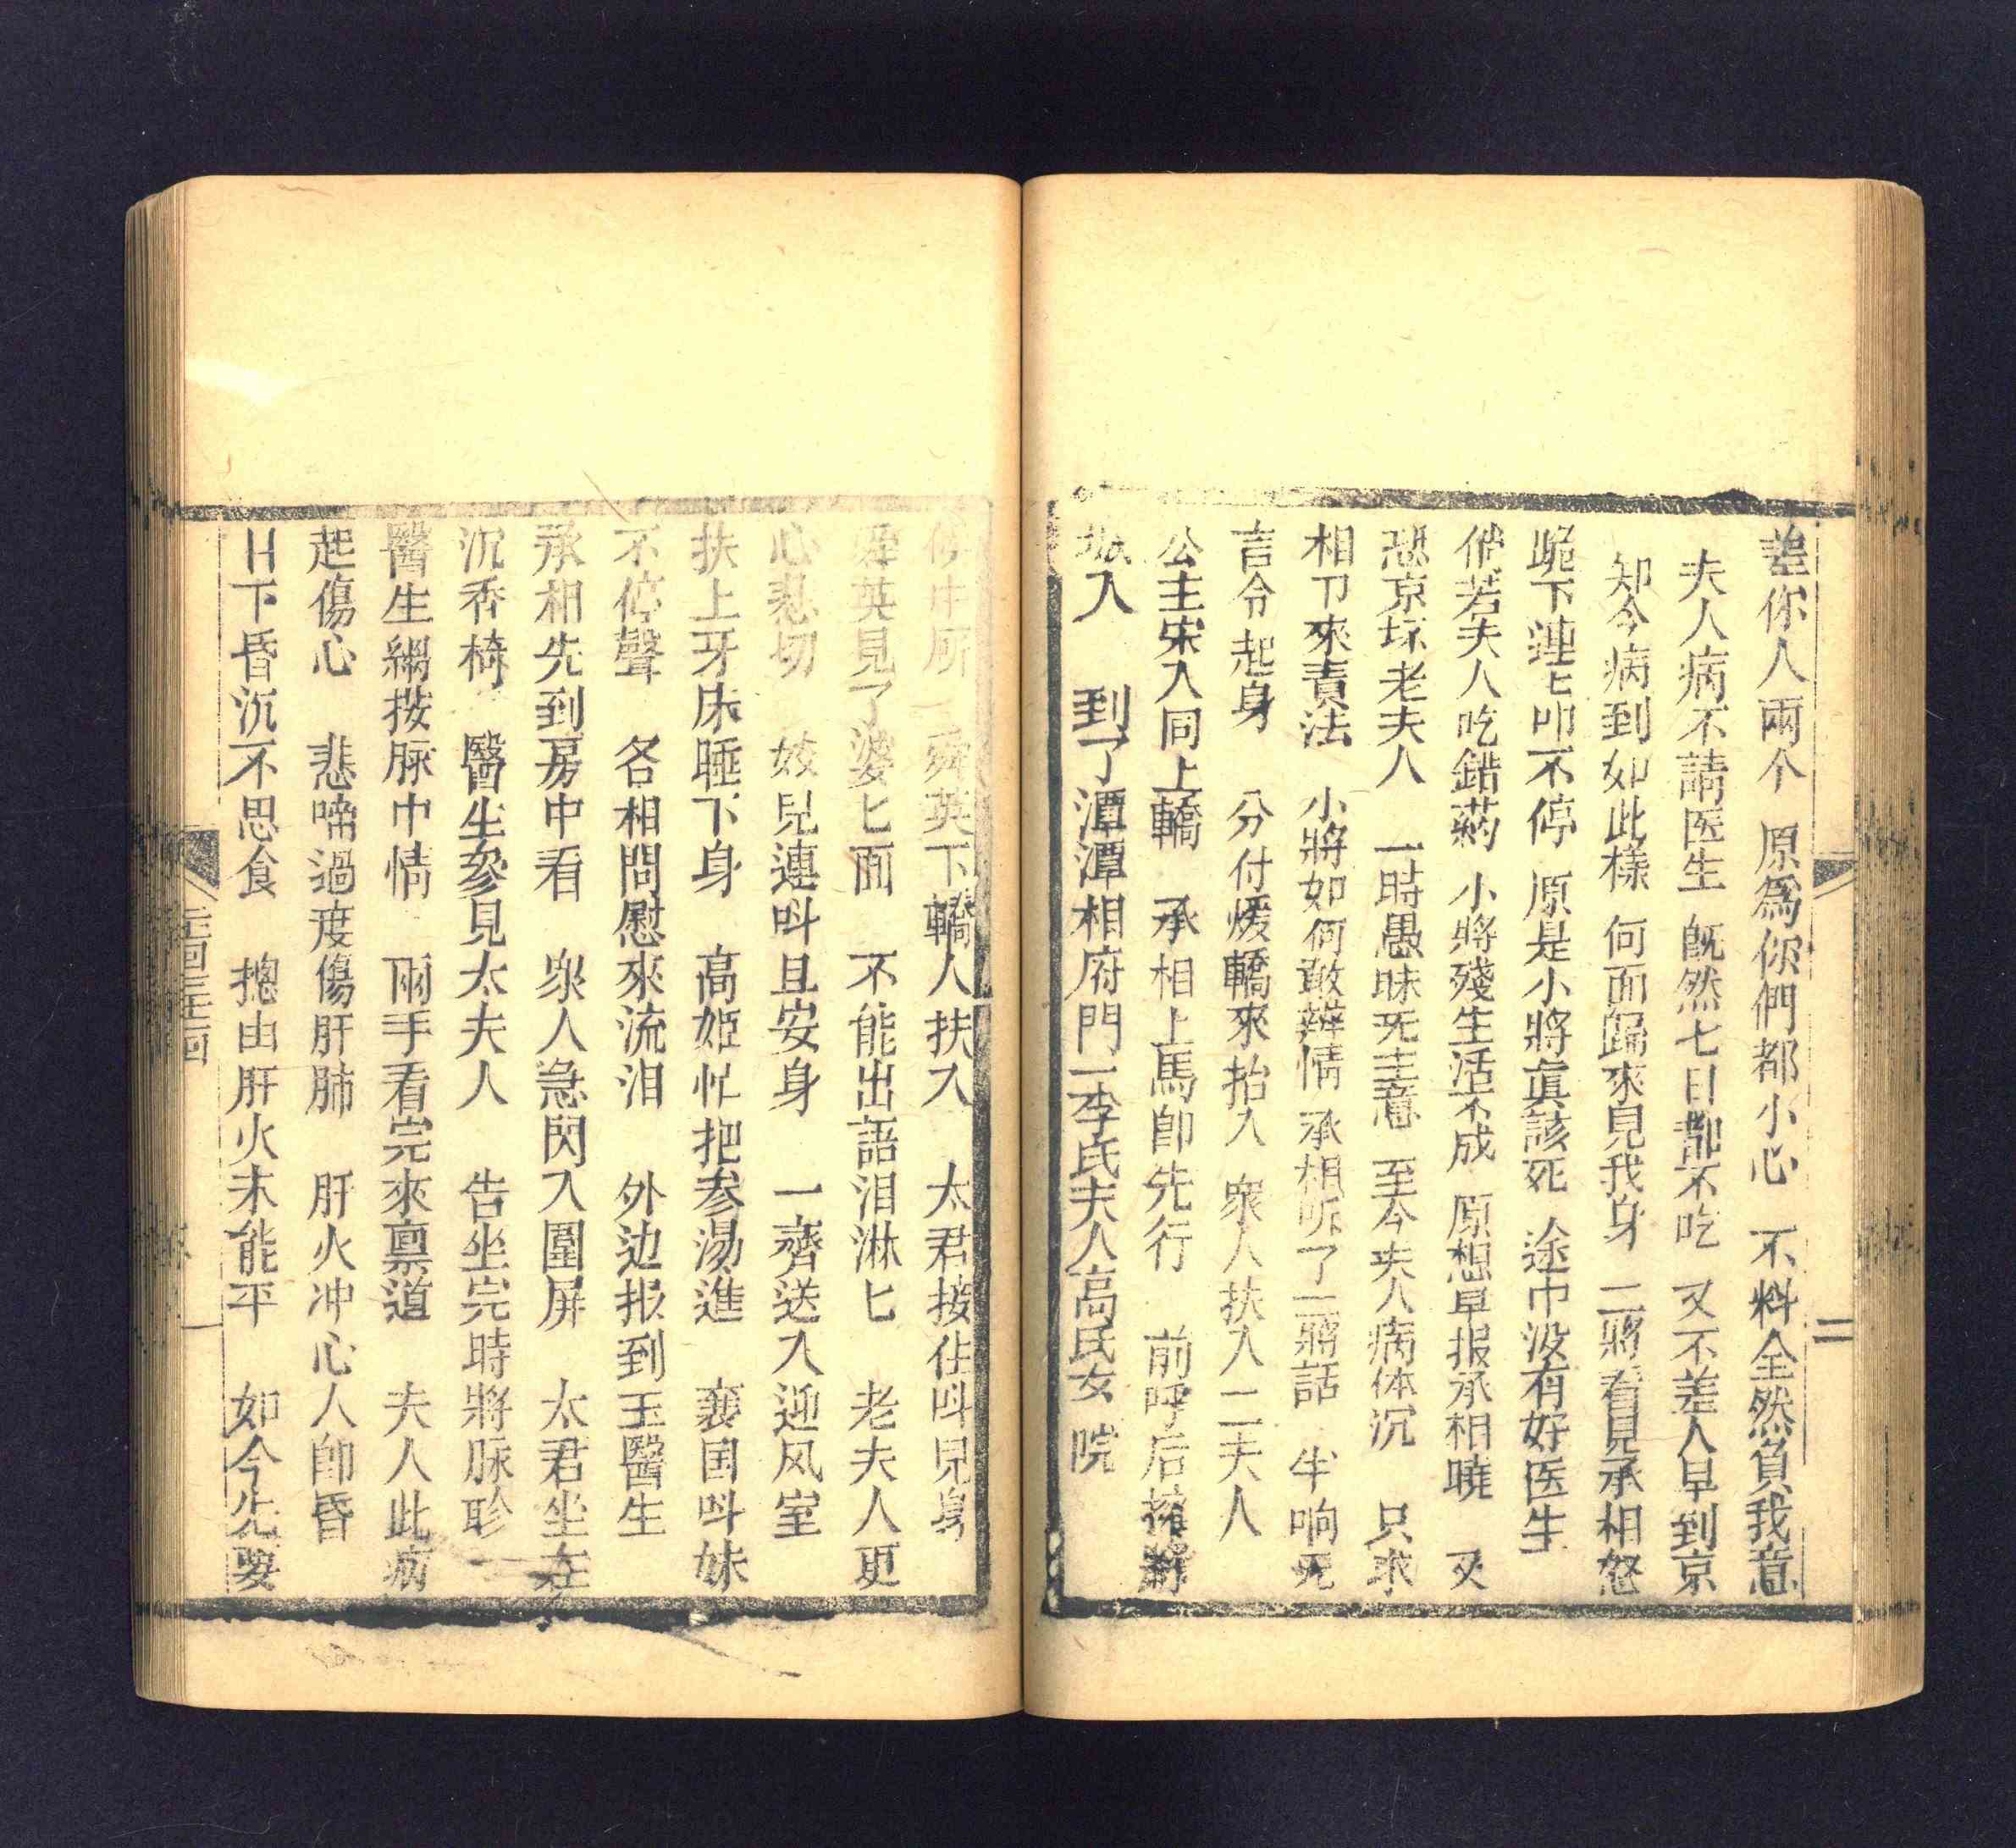 差你人兩个　原爲你們都小心　不料全然負我意
夫人病不請医生　既然七日都不吃　又不差人早到京
知今病到如此樣　何面歸來見我身　二將看見承相怒
跪下連匕叩不停　原是小將眞該死　途中没有好医生
倘若夫人吃錯葯　小將殘生活不成　原想早报承相曉　又
恐京坏老夫人　一時愚昧无主意　至今夫人病体沉　只求
相卩來責法　小將如何敢辨情　承相听了二將話　半响无
言令起身　分付煖轎來抬入　衆人扶入二夫人
公主宋入同上轎　承相上馬卽先行　前呼后擁
城入　到了潭潭相府門　李氏夫人高氏女　院
二
舜英下轎人扶入　太君接住呌兒身
舜英見了婆匕面　不能出語泪淋匕　老夫人更
心悲切　姣兒連呌且安身　一齊送入迎风室
扶上牙床睡下身　高姫忙把参湯進　襄国呌妹
不停聲　各相問慰來流泪　外边报到玉醫生
承相先到房中看　衆人急閃入圍屏　太君坐在
沉香椅　醫生參見太夫人　告坐完時將脉聆
醫生細按脉中情　兩手看完來禀道　夫人此病
起傷心　悲啼過度傷肝肺　肝火冲心人卽昏
日下昏沉不思食　摠由肝火未能平　如今先要